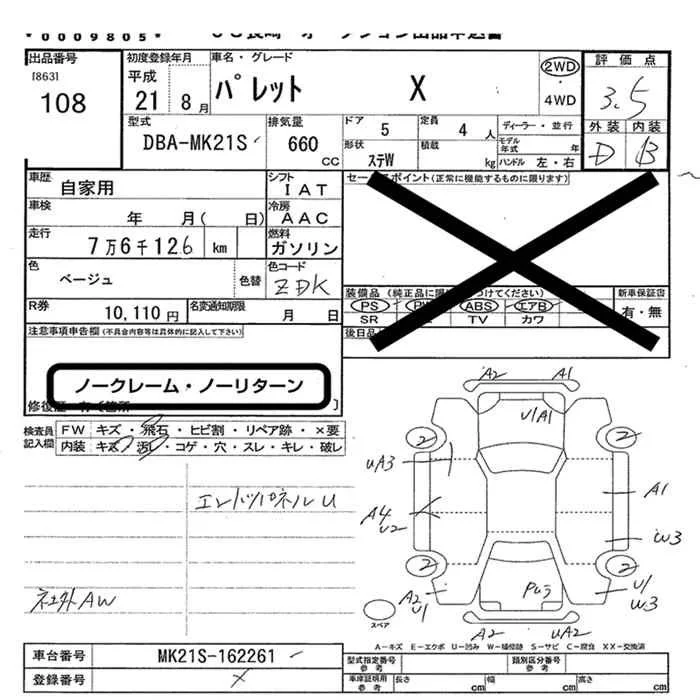 *0009805*
出品番号
[863]
108
初度登録年月
平成
21 8月
車名・グレード
パレット X
2WD
・
4WD
評価点
3.5
外装 内装
D B
型式
DBA-MK21S
排気量
660
CC
ドア 5
定員 4 人
形状
ステW
積載 kg
ディーラー・並行
モデル年式 年
ハンドル 左・右
車歴
自家用
シフト
IAT
車検
年 月( 日)
冷房
AAC
走行
7万6千126 km
燃料
ガソリン
色
ベージュ
色替
色コード
ZDK
R券
10,110円
名変通知期限
月 日
セールスポイント(正常に機能するものに限ります)
装備品
PS
ABS
エアB
SR
TV
カワ
新車保証書
有・無
後日品
注意事項申告欄(不具合内容等は具体的に記入して下さい)
ノークレーム・ノーリターン
検査員
記入欄
FW キズ・飛石・ヒビ割・リペア跡・×要
内装 キズ・汚レ・コゲ・穴・スレ・キレ・破レ
エンドパネルU
AW
A2 A1
U/A1
2 2
UA3
A4
U2
A1
W3
2 2
A2
U1
U1
W3
A2 UA2
スペア
A−キズ E−エクボ U−凹み W−補修跡 S−サビ C−腐食 XX−交換済
車台番号
MK21S-162261
登録番号
型式指定番号
参考
類別区分番号
参考
車庫証明用
参考
長さ cm
幅 cm
高さ cm